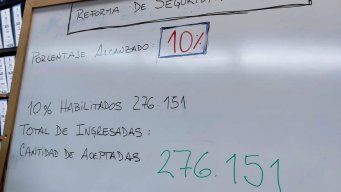 REFORMA DE SEGURIDAD
PORCENTAJE ALCANZADO 10%
10% HABILITADOS 276.151
TOTAL DE INGRESADAS:
CANTIDAD DE ACEPTADAS 276.151